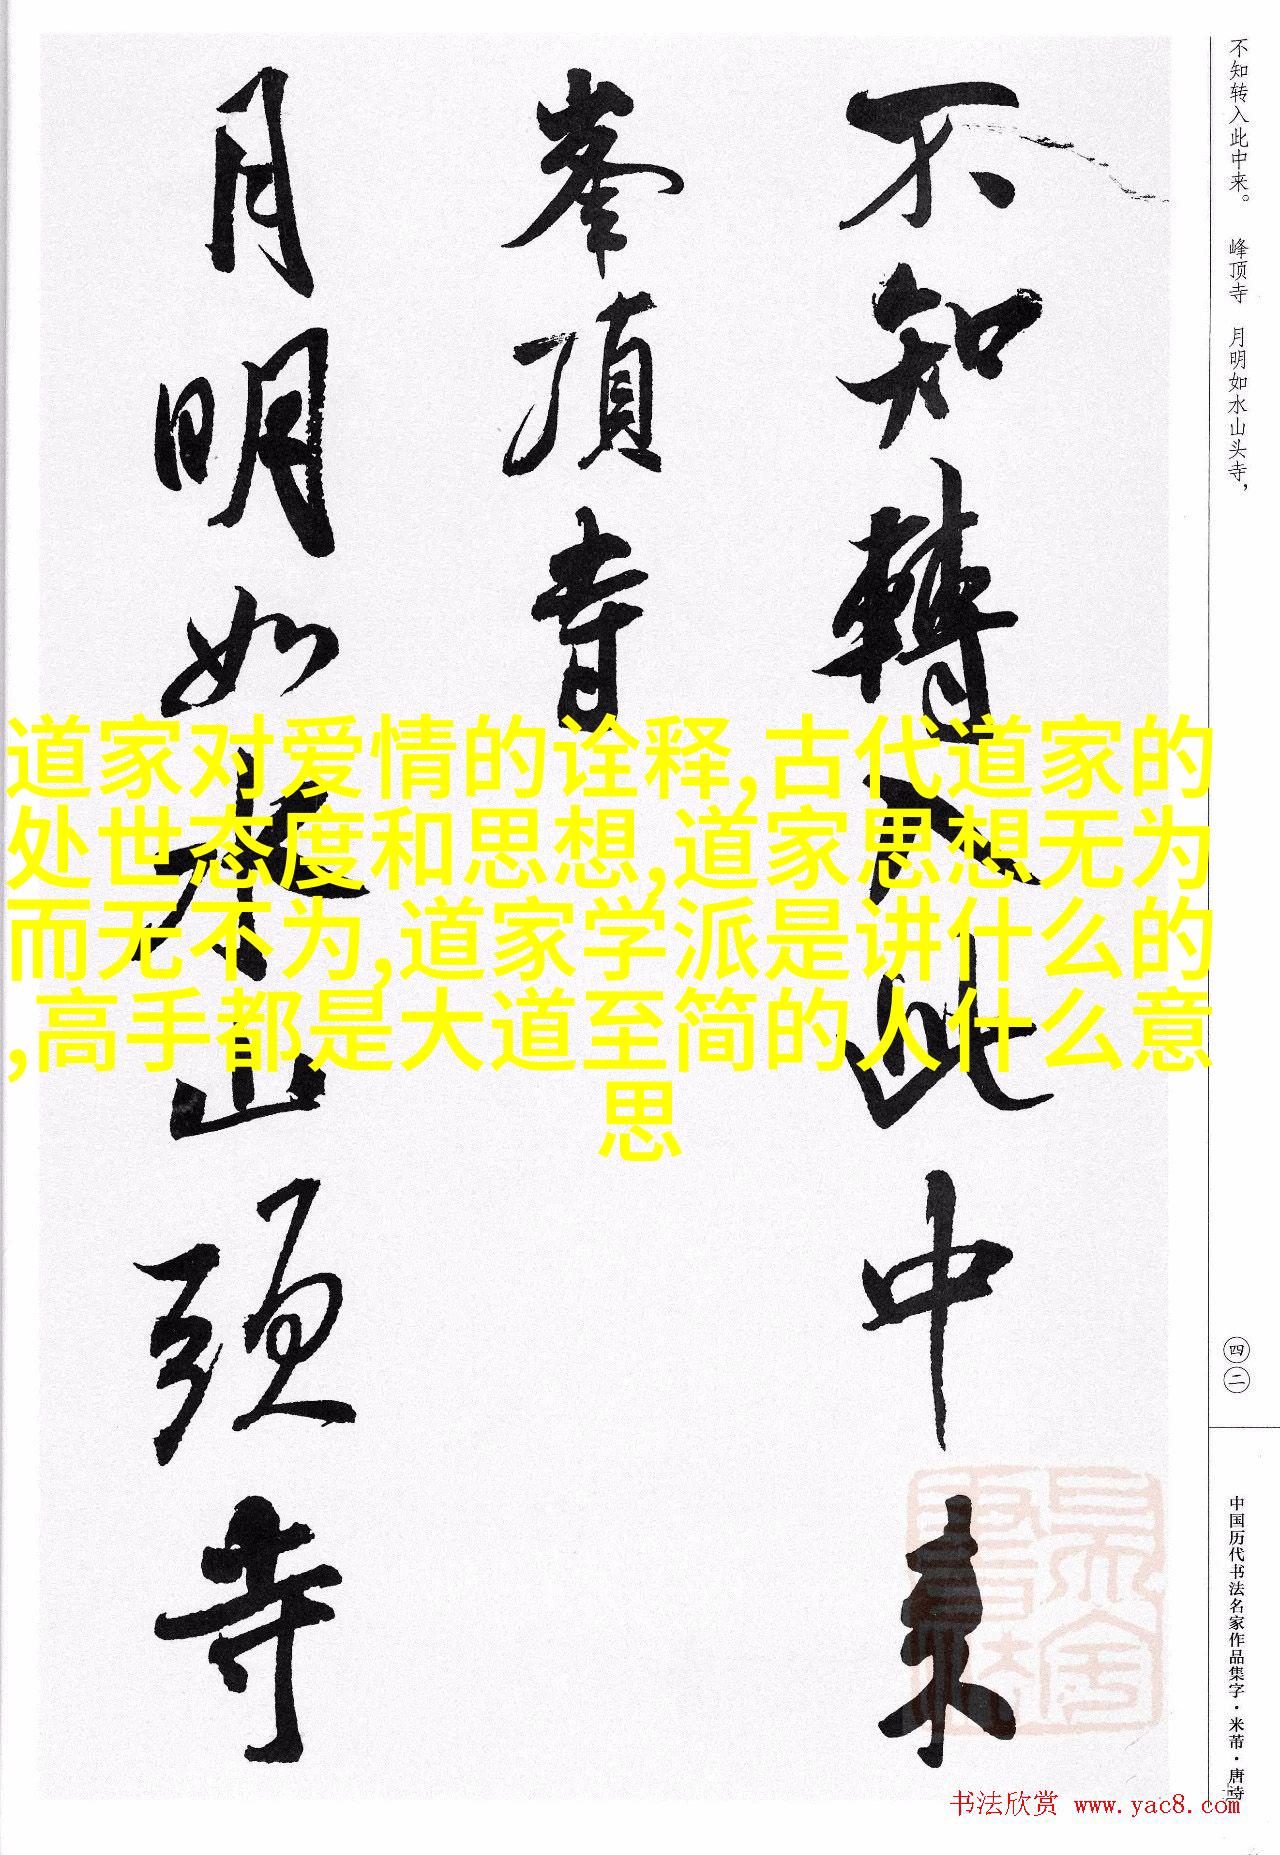 不知转入此中来。 峰顶寺 月明如水山头寺，
不知轉入此中来
峯頂寺
月明如水山頭寺
道家对爱情的诠释,古代道家的
处世态度和思想,道家思想无为
而无不为,道家学派是讲什么的
,高手都是大道至简的人什么意
思
四二
中国历代书法名家作品集字·米芾·唐诗
书法欣赏 www.yac8.com